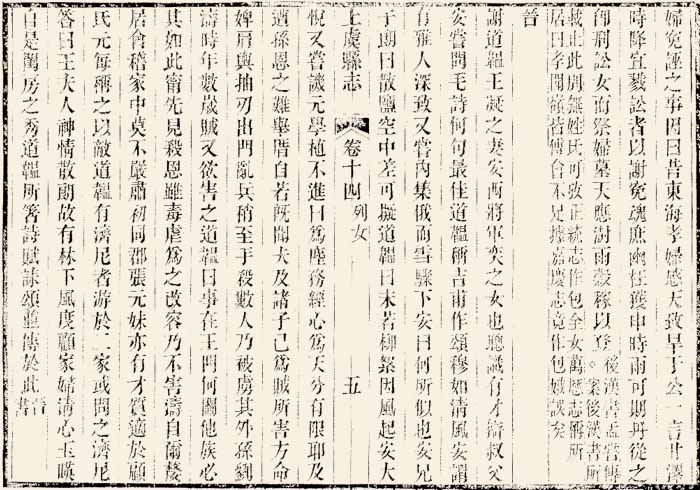 婦冤誣之事因曰昔東海孝婦感天致旱于公一言甘澤
時降宜戮訟者以謝冤魂庶幽枉獲申時雨可期丹從之
卽刑訟女而祭婦墓天應澍雨穀稼以登後漢書孟嘗傳○案後漢書所
載止此別無姓氏可攷正統志作包全女萬厯志稱所
居曰孝聞嶺皆傅會不足據嘉慶志竟作包娥誤矣
晉
謝道韞王凝之妻安西將軍奕之女也聰識有才辯叔父
安嘗問毛詩何句最佳道韞稱吉甫作頌穆如淸風安謂
有雅人深致又嘗內集俄而雪驟下安曰何所似也安兄
子朗曰散鹽空中差可擬道韞曰未若柳絮因風起安大
上虞縣志 卷十四 列女 五
悅又嘗譏元學植不進曰爲塵務經心爲天分有限耶及
遭孫恩之難舉厝自若旣聞夫及諸子已爲賊所害方命
婢肩輿抽刃出門亂兵稍至手殺數人乃被虜其外孫劉
濤時年數歲賊又欲害之道韞曰事在王門何關他族必
其如此甯先見殺恩雖毒虐爲之改容乃不害濤自爾嫠
居會稽家中莫不嚴肅初同郡張元妹亦有才質適於顧
氏元每稱之以敵道韞有濟尼者游於二家或問之濟尼
答曰王夫人神情散朗故有林下風度顧家婦淸心玉暎
自是閨房之秀道韞所箸詩賦誄頌並傳於此晉書